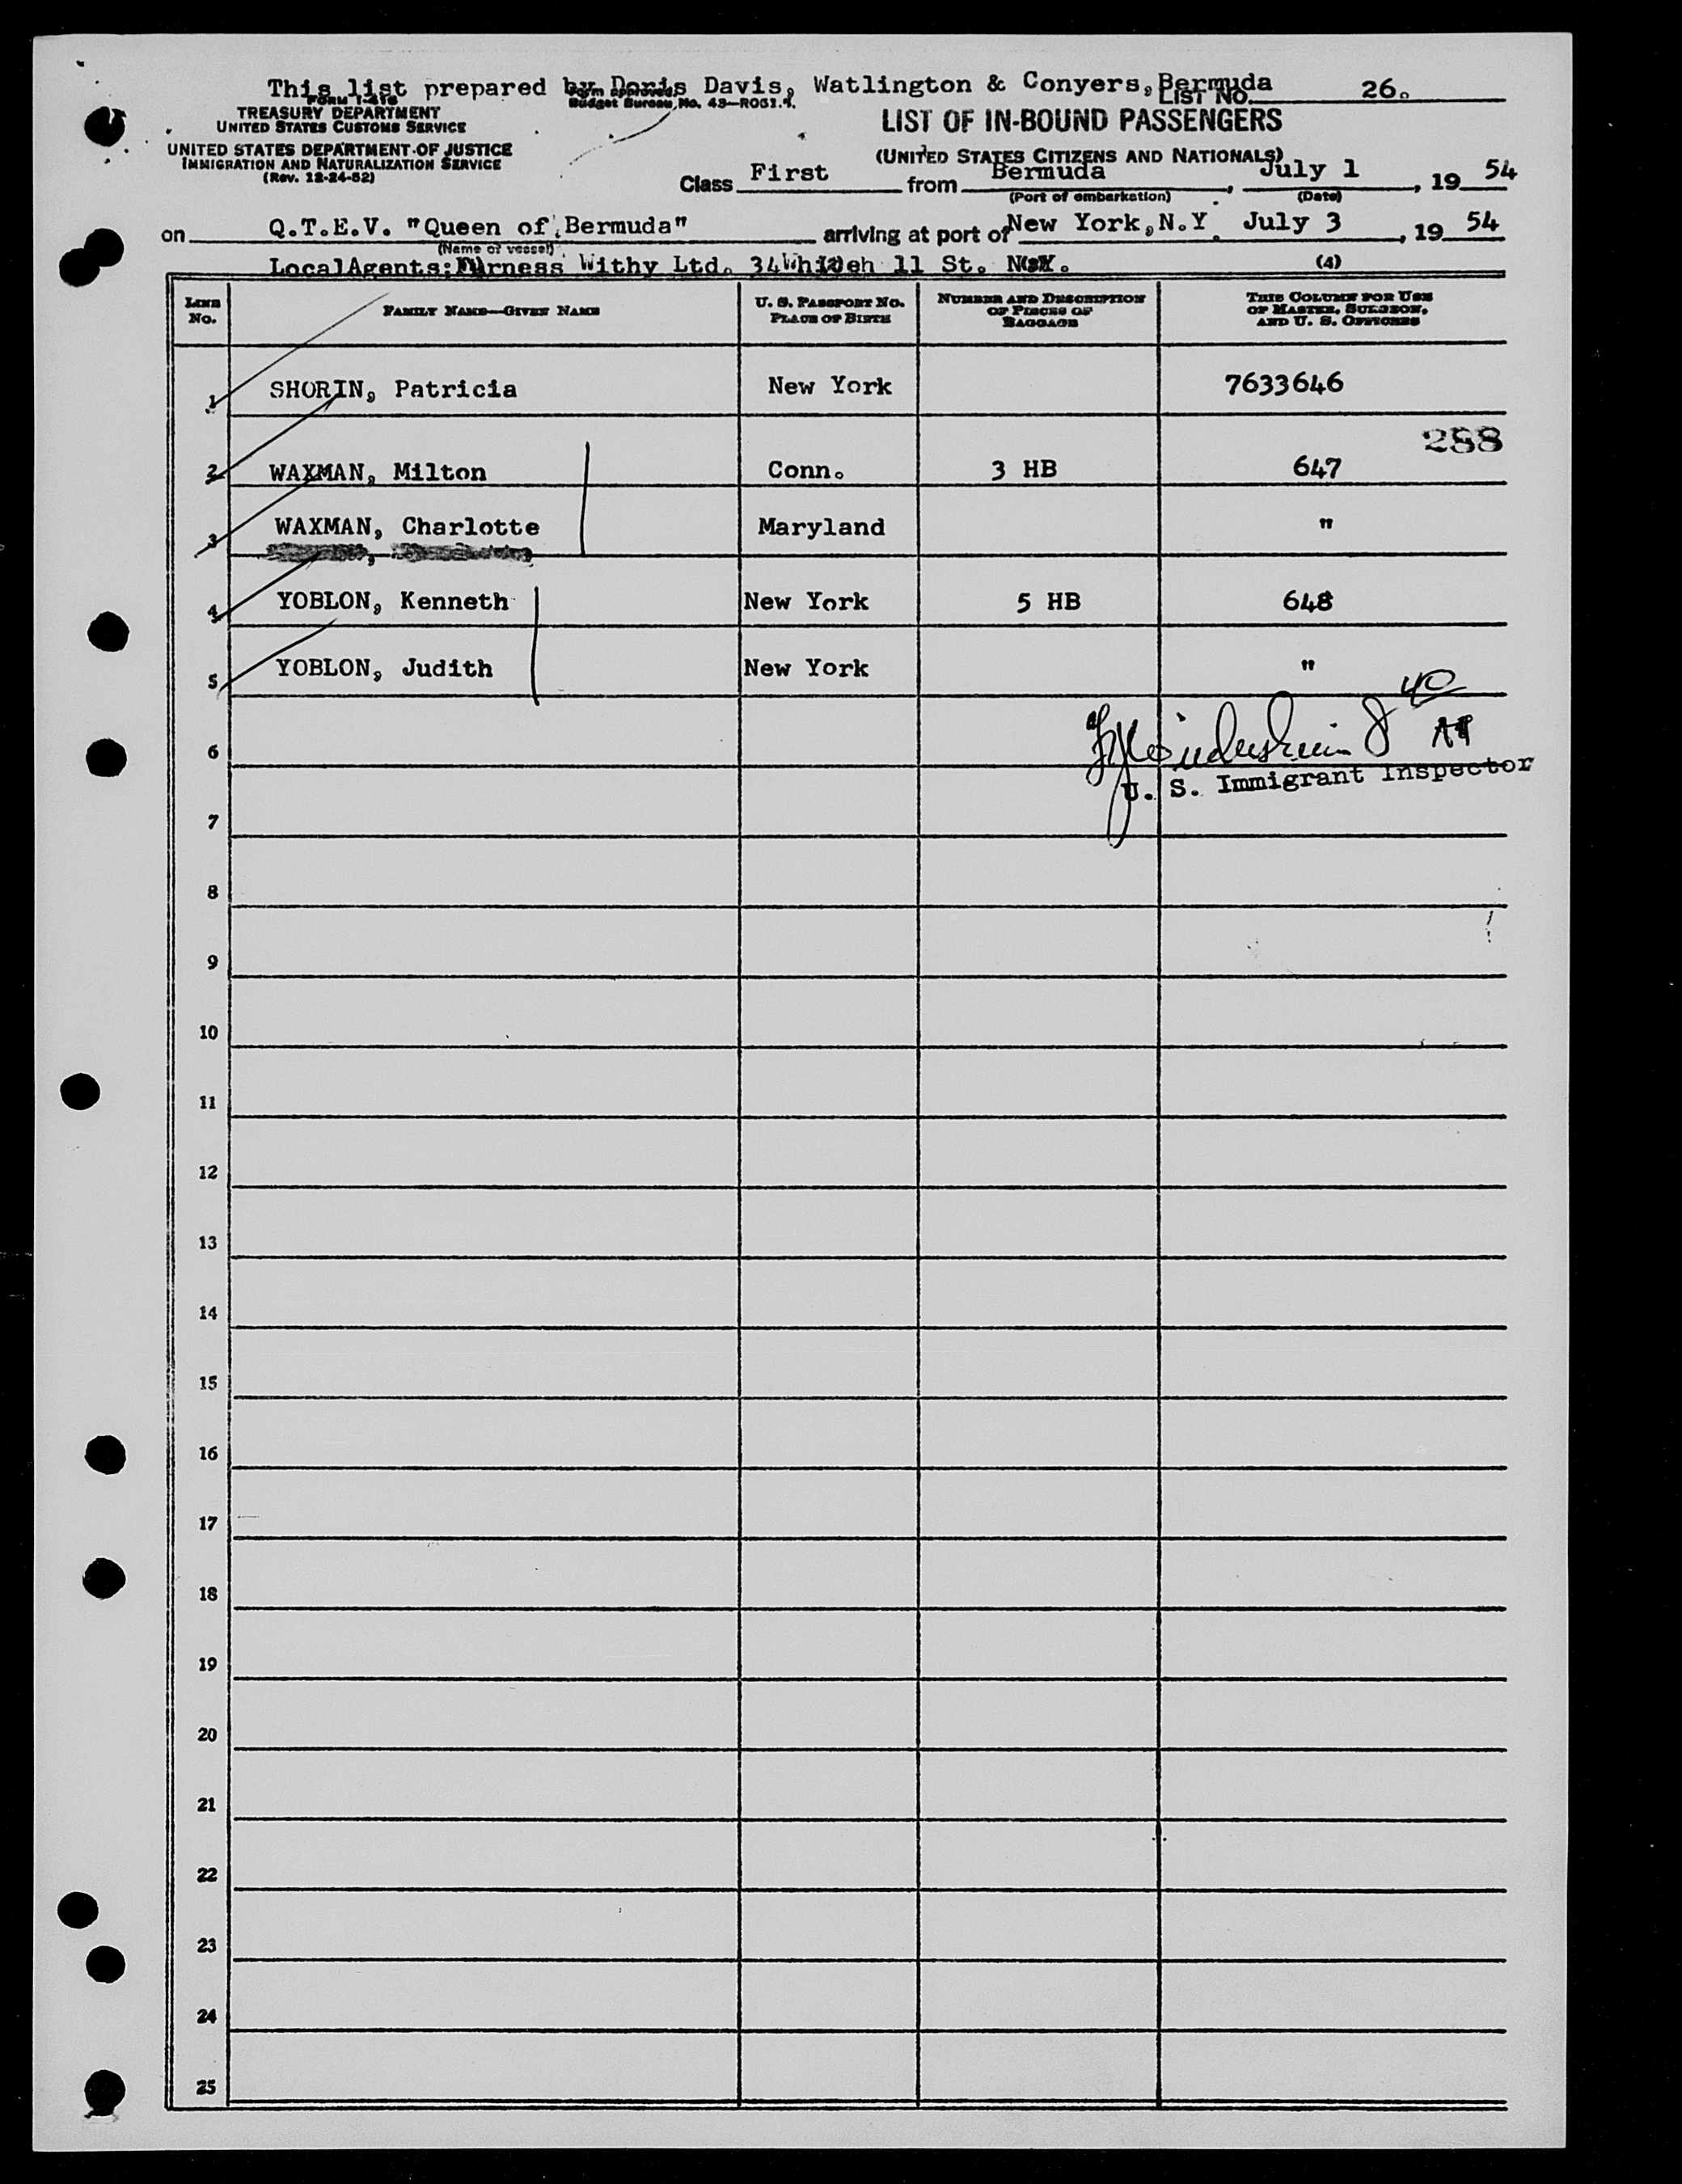 This list prepared by Doris Davis, Watlington & Conyers, Bermuda
LIST NO. 26.
FORM I-418
TREASURY DEPARTMENT
UNITED STATES CUSTOMS SERVICE
UNITED STATES DEPARTMENT OF JUSTICE
IMMIGRATION AND NATURALIZATION SERVICE
(Rev. 12-24-52)
Form approved.
Budget Bureau No. 43-R051.4.
LIST OF IN-BOUND PASSENGERS
(UNITED STATES CITIZENS AND NATIONALS)
Class First from Bermuda, July 1, 19 54
(Port of embarkation) (Date)
on Q.T.E.V. "Queen of Bermuda" arriving at port of New York, N.Y. July 3, 19 54
(Name of vessel)
Local Agents: Furness Withy Ltd. 34 Whitehall St. N.Y. (4)
LINE No. FAMILY NAME—GIVEN NAME U. S. PASSPORT NO. PLACE OF BIRTH NUMBER AND DESCRIPTION OF PIECES OF BAGGAGE THIS COLUMN FOR USE OF MASTER, SURGEON, AND U. S. OFFICERS
1 SHORIN, Patricia New York 7633646
288
2 WAXMAN, Milton Conn. 3 HB 647
3 WAXMAN, Charlotte Maryland "
4 YOBLON, Kenneth New York 5 HB 648
5 YOBLON, Judith New York "
40
6
U. S. Immigrant Inspector
7
8
9
10
11
12
13
14
15
16
17
18
19
20
21
22
23
24
25